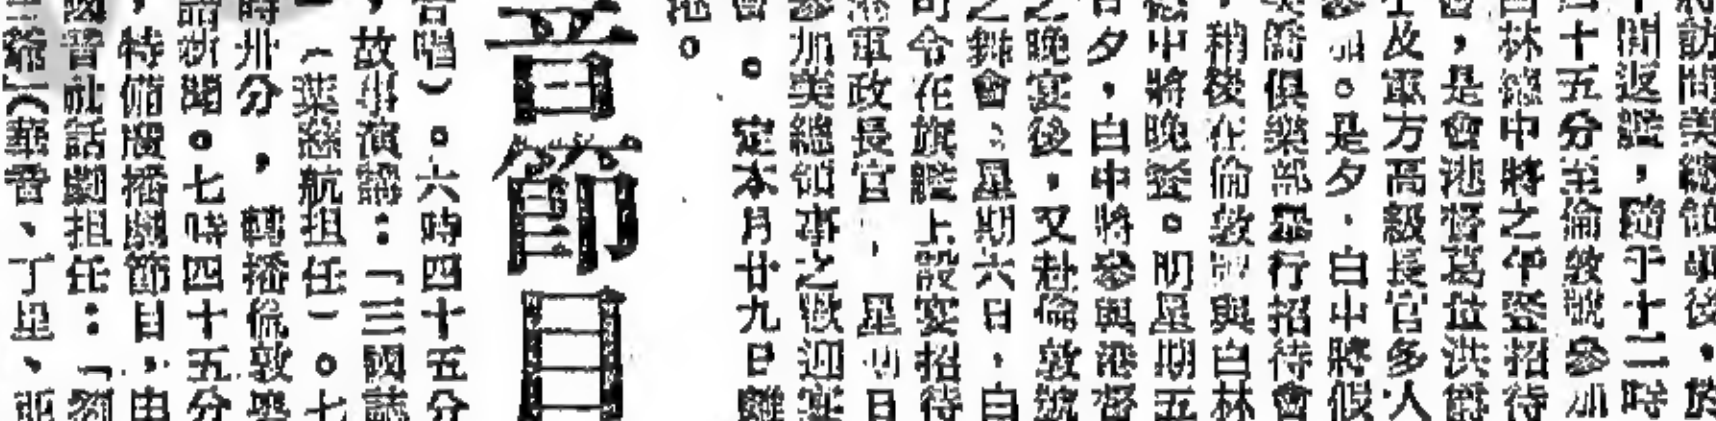 將訪問美總領事後，於
午間返艦，隨于十二時
四十五分至倫敦號參加
白林總中將之午餐招待
會，是會港督葛量洪爵
士及軍方高級長官多人
參加。是夕，白中將假
美僑俱樂部舉行招待會
，稍後在倫敦號與白林
總中將晚餐。明星期五
日夕，白中將參與港督
之晚宴後，又赴倫敦號
之舞會；星期六日，白
司令在旗艦上設宴招待
軍政長官，星期日
參加美總領事之歡迎宴
會。定本月廿九日離
港。
音節目
合唱）。六時四十五分
，故事演講：「三國誌
」（葉慈航担任）。七
時卅分，轉播倫敦
語新聞。七時四十五分
，特備廣播劇節目，由
國音社話劇担任：「劉
三爺」（華音、丁星、